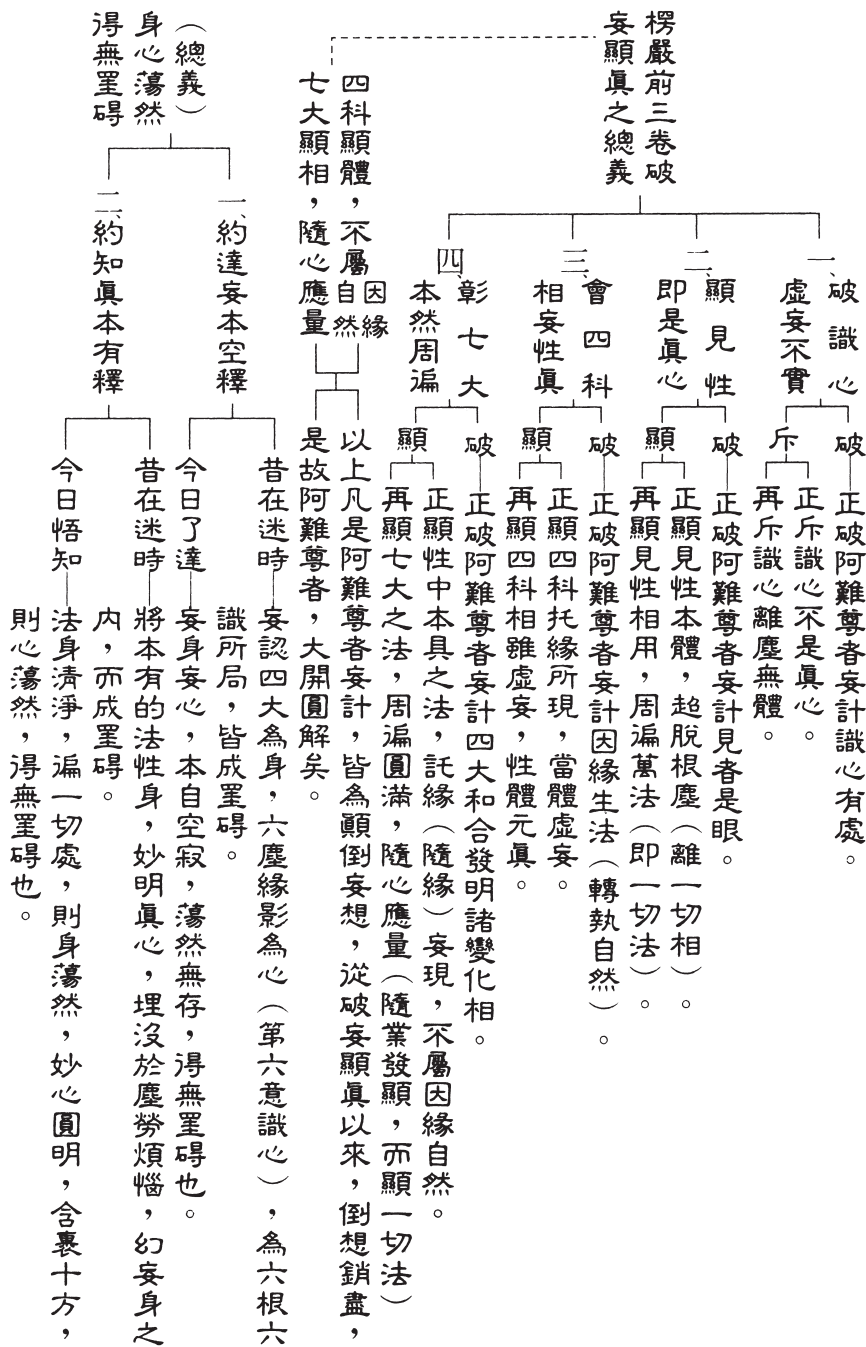 楞嚴前三卷破
妄顯眞之總義
一、破識心
虛妄不實
破
正破阿難尊者妄計識心有處。
斥
正斥識心不是眞心。
再斥識心離塵無體。
二、顯見性
即是眞心
破
正破阿難尊者妄計見者是眼。
顯
正顯見性本體，超脫根塵（離一切相）。
再顯見性相用，周遍萬法（即一切法）。
三、會四科
相妄性眞
破
正破阿難尊者妄計因緣生法（轉執自然）。
顯
正顯四科托緣所現，當體虛妄。
再顯四科相雖虛妄，性體元眞。
四、彰七大
本然周遍
破
正破阿難尊者妄計四大和合發明諸變化相。
顯
正顯性中本具之法，託緣（隨緣）妄現，不屬因緣自然。
再顯七大之法，周遍圓滿，隨心應量（隨業發顯，而顯一切法）
四科顯體，不屬因緣
自然
七大顯相，隨心應量
以上凡是阿難尊者妄計，皆為顚倒妄想，從破妄顯眞以來，倒想銷盡，
是故阿難尊者，大開圓解矣。
（總義）
身心蕩然
得無罣碍
一、約達妄本空釋
昔在迷時
妄認四大為身，六塵緣影為心（第六意識心），為六根六
識所局，皆成罣碍。
今日了達
妄身妄心，本自空寂，蕩然無存，得無罣碍也。
二、約知眞本有釋
昔在迷時
將本有的法性身，妙明眞心，埋沒於塵勞煩惱，幻妄身之
內，而成罣碍。
今日悟知
法身清淨，遍一切處，則身蕩然，妙心圓明，含裹十方，
則心蕩然，得無罣碍也。